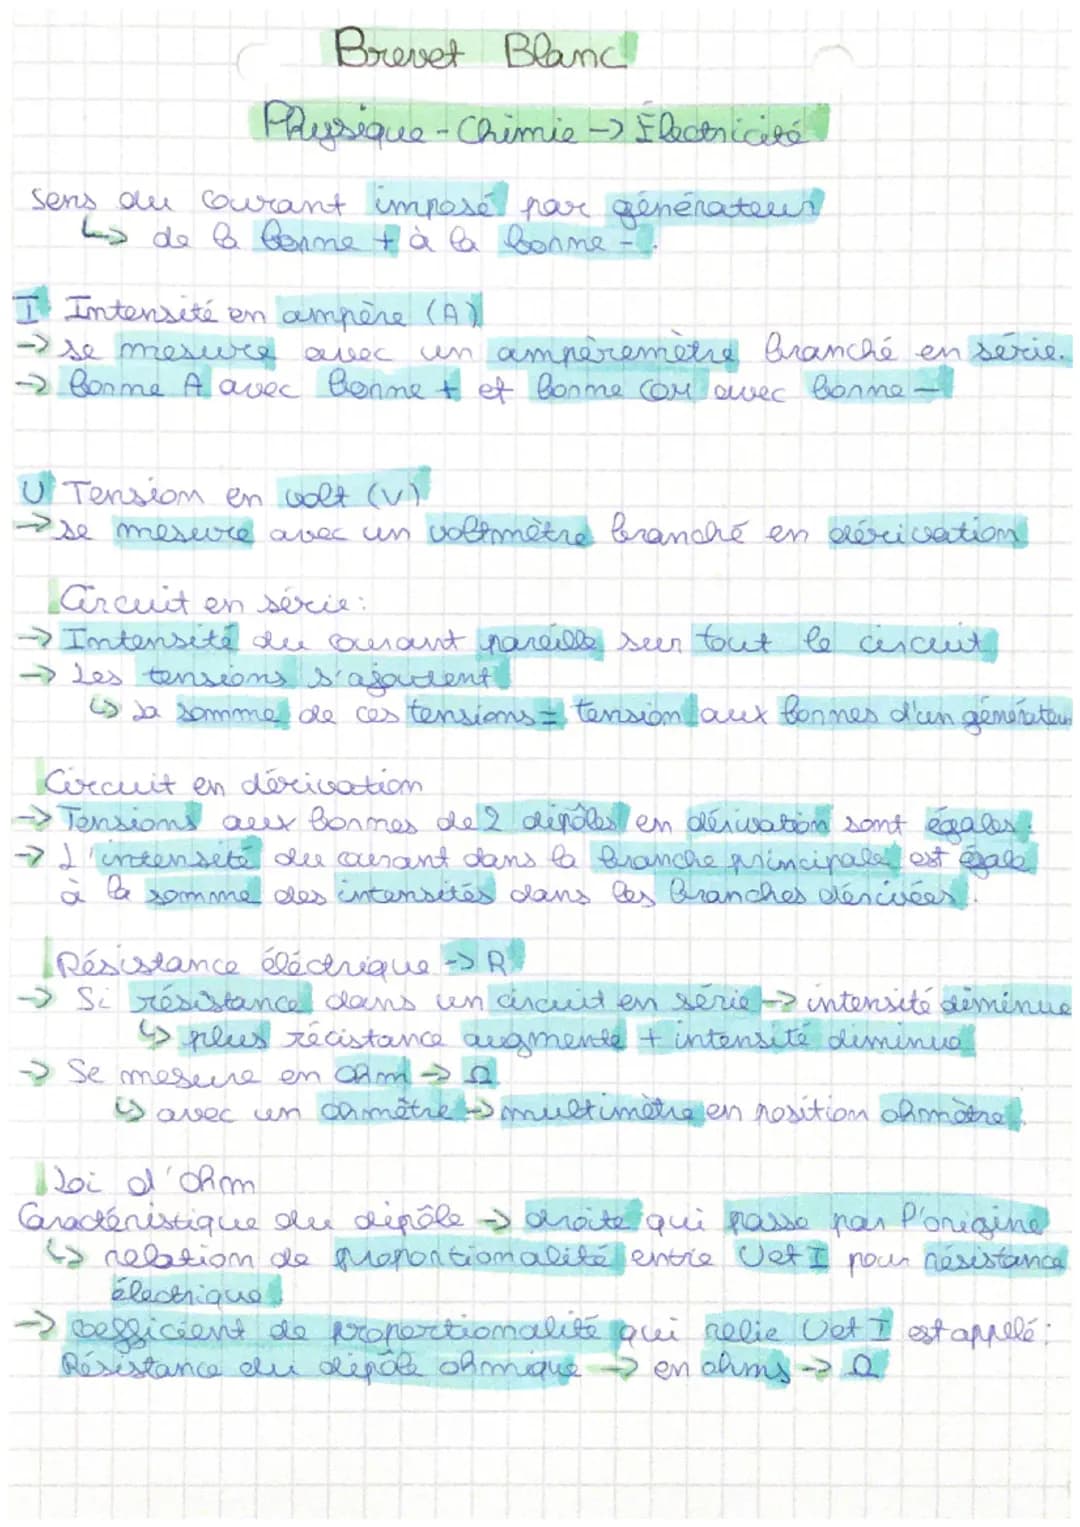 Brevet Blanc
Physique-Chimie → Électricité
Sens du courant imposé par générateur
↳ de la borne + à la borne -.
I Intensité en ampère (A)
→ se mesure avec un ampèremètre branché en série.
→ borne A avec borne + et borne COM avec borne -
U Tension en volt (V)
→ se mesure avec un voltmètre branché en dérivation
Circuit en série:
→ Intensité du courant pareille sur tout le circuit
→ Les tensions s'ajoutent
↳ La somme de ces tensions = tension aux bornes d'un générateur
Circuit en dérivation
→ Tensions aux bornes de 2 dipôles en dérivation sont égales.
→ L'intensité du courant dans la branche principale est égale
à la somme des intensités dans les branches dérivées.
Résistance éléctrique → R
→ Si résistance dans un circuit en série → intensité diminue
↳ plus récistance augmente + intensité diminue
→ Se mesure en Ohm → Ω
↳ avec un ohmètre → multimètre en position ohmètre.
Loi d'Ohm
Caractéristique du dipôle → droite qui passe par l'origine
↳ relation de proportionnalité entre U et I pour résistance
électrique
→ coefficient de proportionnalité qui relie U et I est appelé:
Résistance du dipôle ohmique → en ohms → Ω